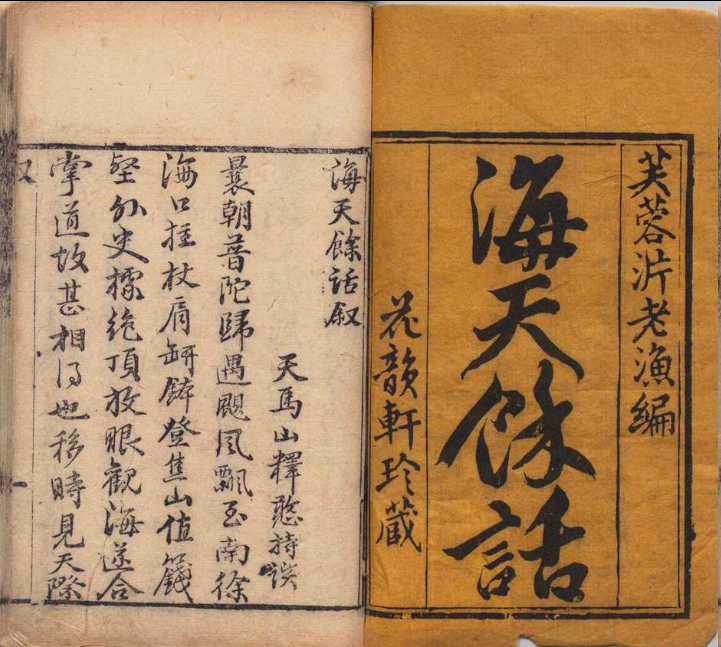 芙蓉沜老漁編
海天餘話
花韻軒珍藏
海天餘話叙
天馬山釋憨持譔
曩朝普陀歸遇颶風飄至南徐
海口拄杖肩缾鉢登焦山值籛
壑外史據絶頂放眼觀海遂合
掌道故甚相得也移時見天際
叙
一